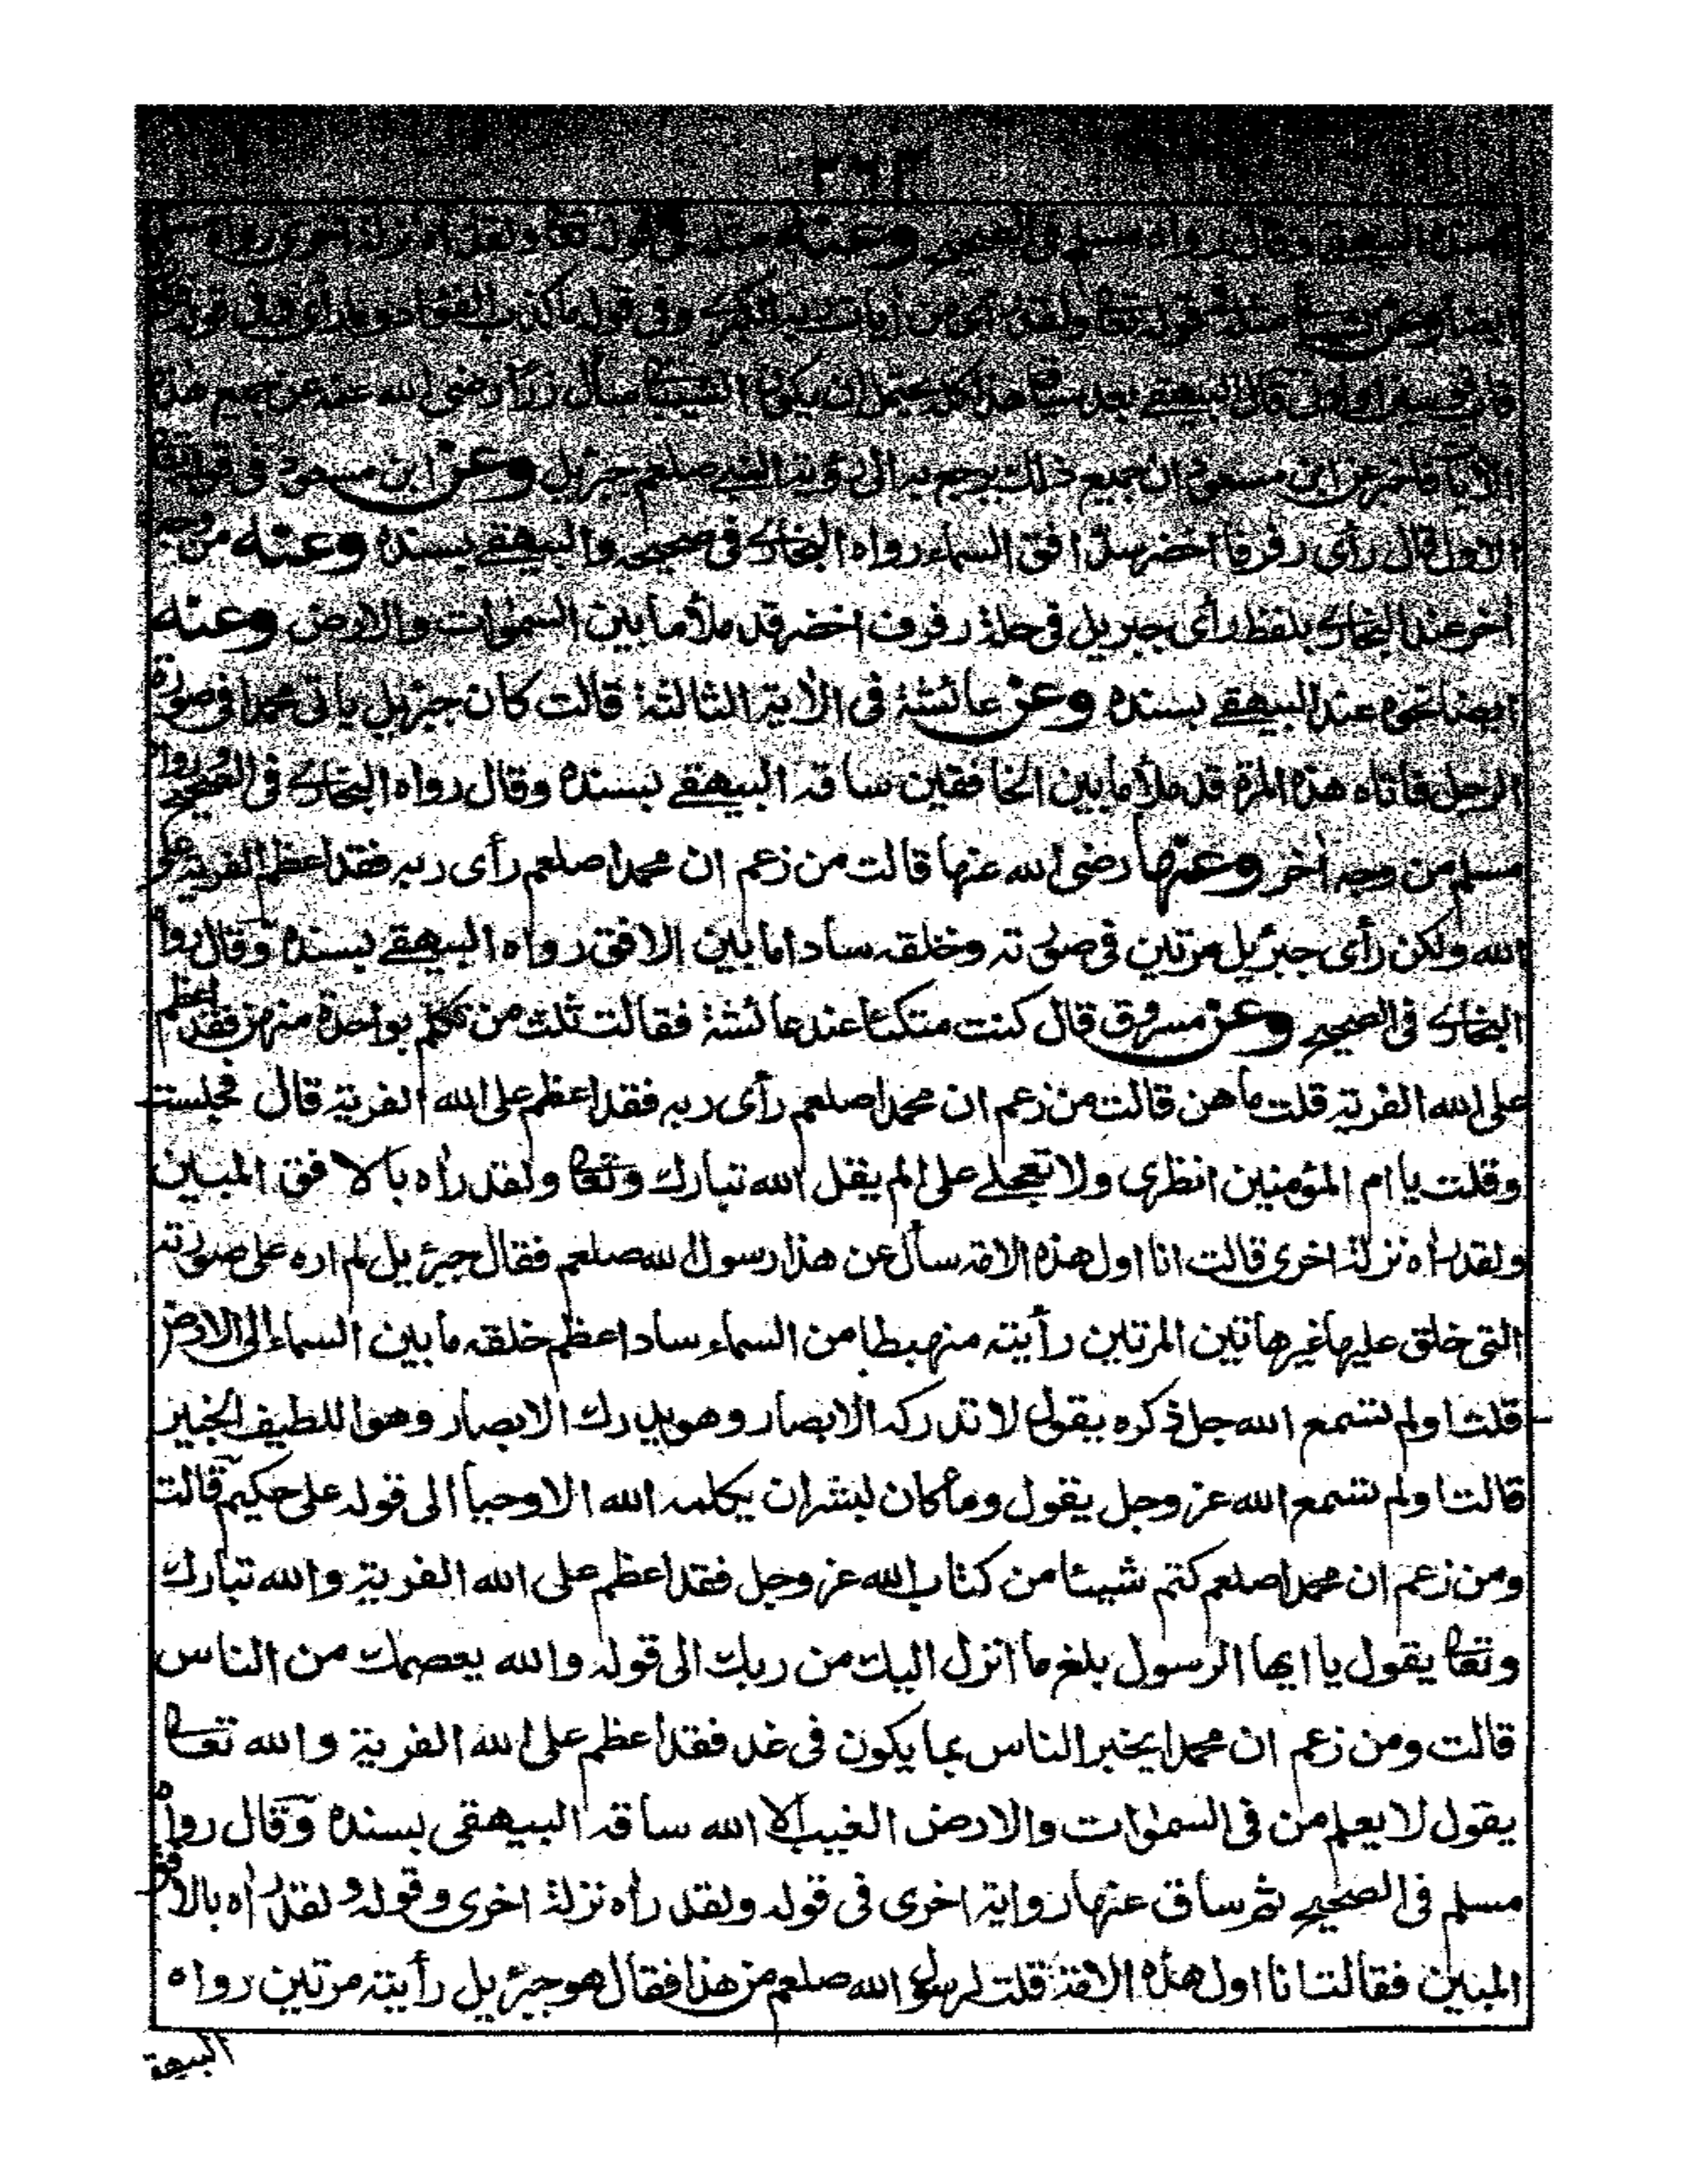 بسنده البيهقي وقال رواه مسلم في الصحيح وعنه مثله في قوله تعا ولقد راه نزلة اخرى رواه
ايضا وعن مثله في قوله تعا ولقد رأى من أيات ربه الكبرى وفي قوله ما كذب الفؤاد ما رأى وفي قوله
قاب قوسين او ادنى قال البيهقي بعد هذا كله يحتمل ان يكون الشيباني سأل زرا رضي الله عنه عن جميع هذه
الأيات فاخبر عن ابن مسعود ان جميع ذلك يرجع به الى رؤية النبي صلعم جبرئيل وعن ابن مسعود في قوله
الاول قال رأى رفرفا اخضر سد افق السماء رواه البخاري في صحيحه والبيهقي بسنده وعنه من وجه
أخر عند البخاري بلفظ رأى جبريل في حلة رفرف اخضر قد ملأ ما بين السموات والارض وعنه
ايضا نحوه عند البيهقي بسنده وعن عائشة في الأية الثالثة قالت كان جبرئيل يأتي محمدا في صورة
الرجل فاتاه هذه المرة قد ملأ ما بين الخافقين ساقه البيهقي بسنده وقال رواه البخاري في الصحيح ورواه
مسلم من وجه أخر وعنها رضي الله عنها قالت من زعم ان محمدا صلعم رأى ربه فقد اعظم الفرية على
الله ولكن رأى جبرئيل مرتين في صورته وخلقه سادا ما بين الافق رواه البيهقي بسنده وقال رواه
البخاري في الصحيح وعن مسروق قال كنت متكئا عند عائشة فقالت ثلث من تكلم بواحدة منهن فقد اعظم
على الله الفرية قلت ما هن قالت من زعم ان محمدا صلعم رأى ربه فقد اعظم على الله الفرية قال فجلست
وقلت يا ام المؤمنين انظري ولا تعجلي على الم يقل الله تبارك وتعا ولقد رأه بالافق المبين
ولقد رأه نزلة اخرى قالت انا اول هذه الامة سأل عن هذا رسول الله صلعم فقال جبرئيل لم اره على صورته
التي خلق عليها غير هاتين المرتين رأيته منهبطا من السماء سادا عظم خلقه ما بين السماء الى الارض
قلت او لم تسمع الله جل ذكره يقول لا تدركه الابصار وهو يدرك الابصار وهو اللطيف الخبير
قالت او لم تسمع الله عز وجل يقول وما كان لبشر ان يكلمه الله الا وحيا الى قوله على حكيم قالت
ومن زعم ان محمدا صلعم كتم شيئا من كتاب الله عز وجل فقد اعظم على الله الفرية والله تبارك
وتعا يقول يا ايها الرسول بلغ ما انزل اليك من ربك الى قوله والله يعصمك من الناس
قالت ومن زعم ان محمدا يخبر الناس بما يكون في غد فقد اعظم على الله الفرية والله تعا
يقول لا يعلم من في السموات والارض الغيب الا الله ساقه البيهقي بسنده وقال رواه
مسلم في الصحيح ثم ساق عنها رواية اخرى في قوله ولقد رأه نزلة اخرى وقوله ولقد رأه بالافق
المبين فقالت انا اول هذه الامة قلت لرسول الله صلعم من هذا فقال هو جبرئيل رأيته مرتين رواه
البيهقي